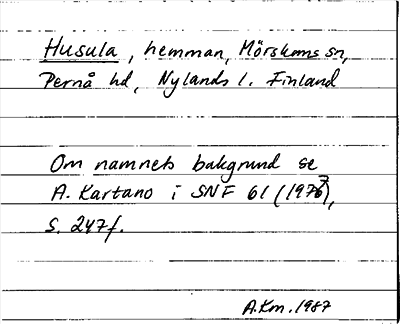 Husula, hemman, Mörskoms sn,
Pernå hd, Nylands l. Finland
Om namnets bakgrund se
A. Kartano i SNF 61 (1973),
s. 247f.
A.Km. 1987